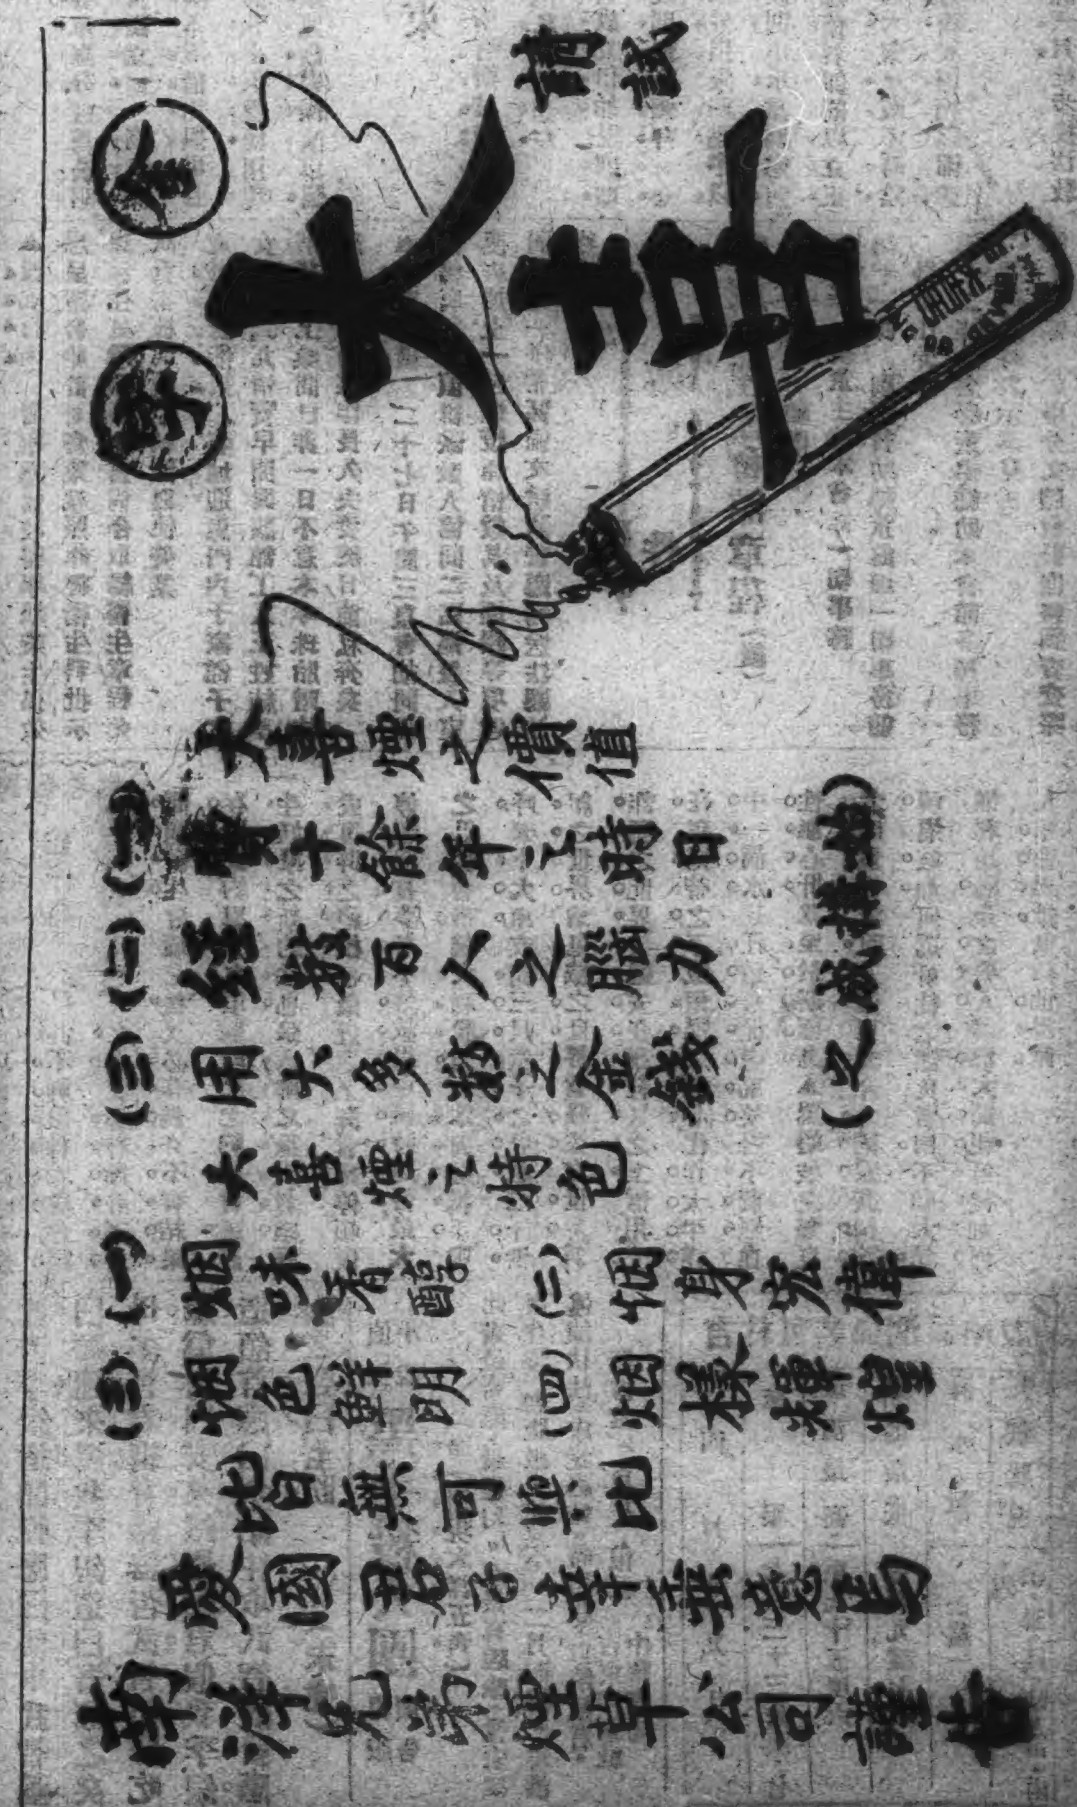 請試
大喜
金字
大喜煙之價值
(一)費十餘年之時日
(二)經數百人之腦力
(三)用大多數之金錢
(始搆成之)
大喜煙之特色
(一)烟味香醇 (二)烟身宏偉
(三)烟色鮮明 (四)烟樣輝煌
皆無可與比
愛國君子幸垂意焉
南洋兄弟煙草公司謹告